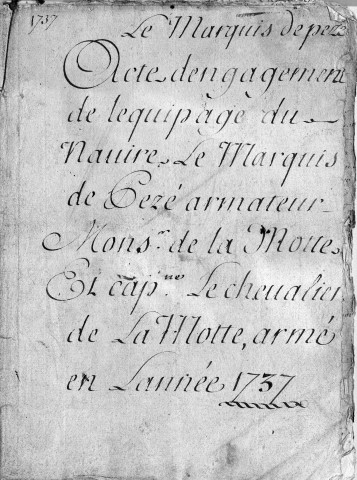 1737
Le Marquis de pezé
Acte dengagement
de lequipage du
Navire Le Marquis
de Pezé armateur
Monsr. de la Motte
Et capne. Le chevalier
de La Motte, armé
en Lannée 1737